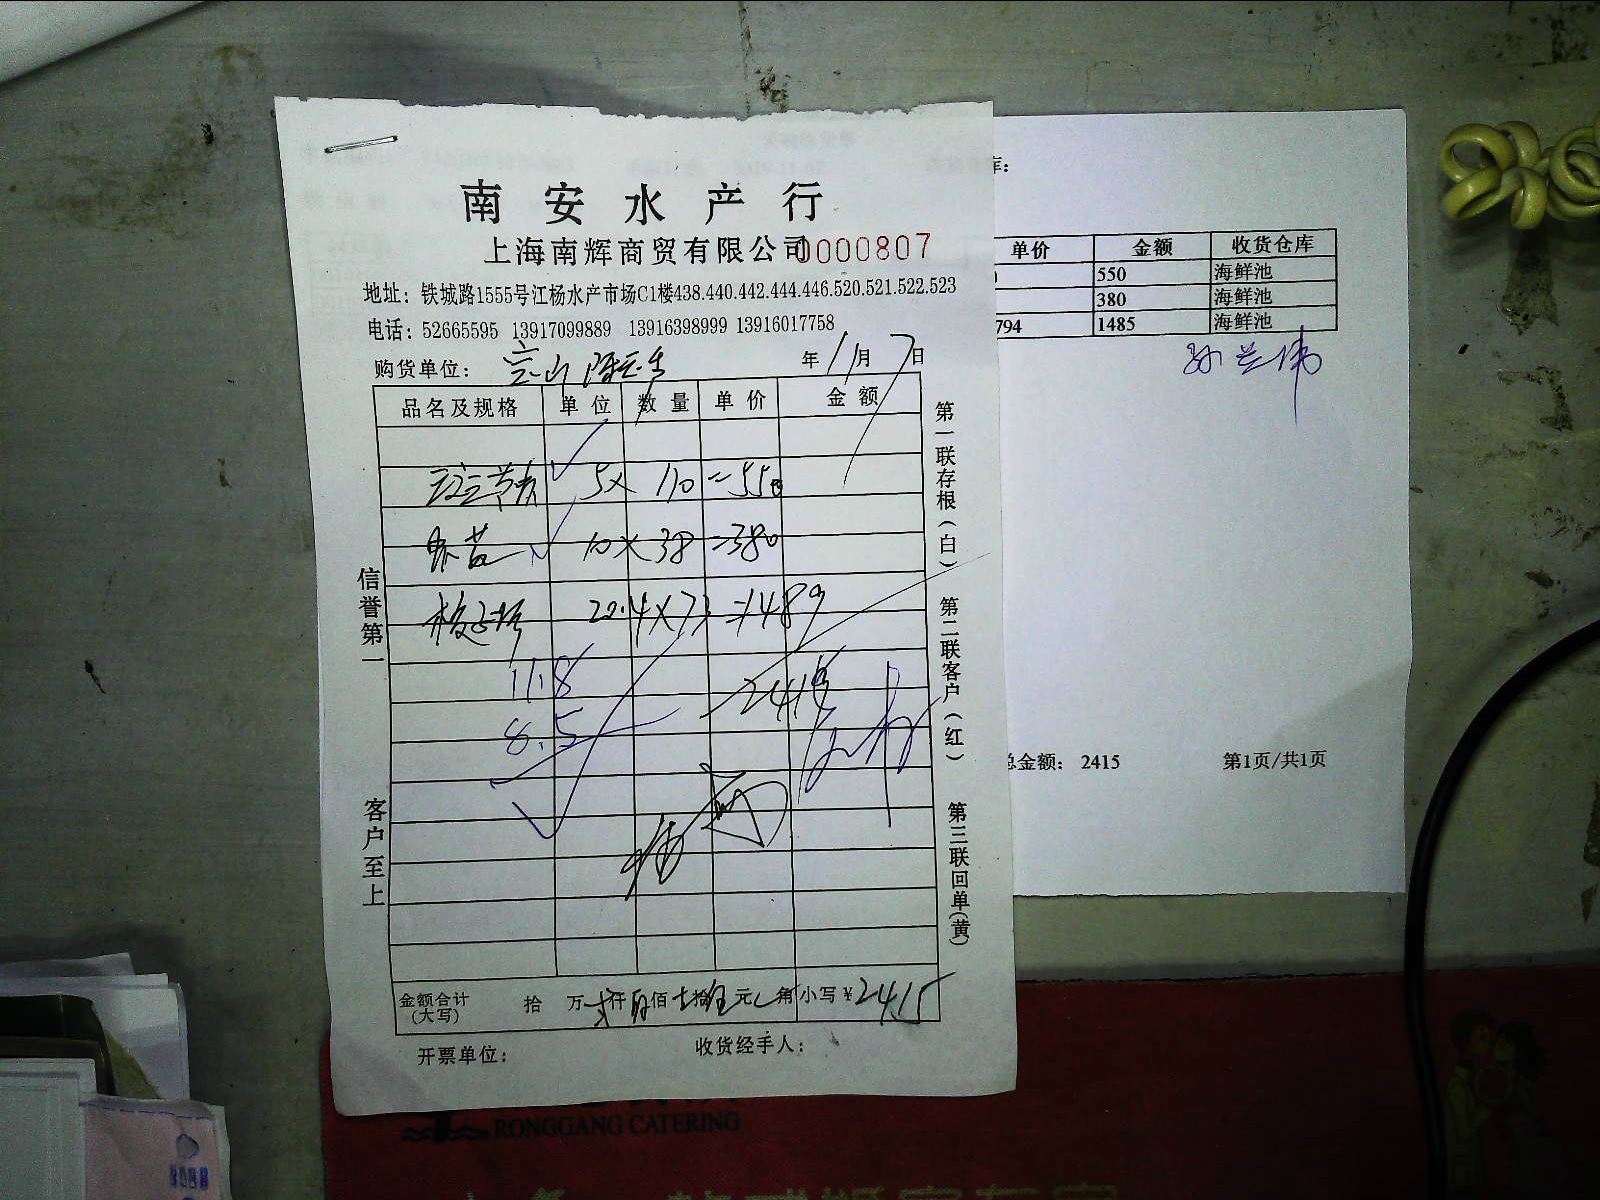 南安水产行
上海南辉商贸有限公司 0000807
地址：铁城路1555号江杨水产市场C1楼438.440.442.444.446.520.521.522.523
电话：52665595 13917099889 13916398999 13916017758
购货单位： 年 11月 7日
品名及规格 单位 数量 单价 金额
5× 110 =550
10×38 =380
11.8
8.5
金额合计(大写) 拾 万 仟 佰 拾 元 角 小写￥2415
开票单位： 收货经手人：
信誉第一
客户至上
第一联存根(白)
第二联客户(红)
第三联回单(黄)
库：
单价 金额 收货仓库
550 海鲜池
380 海鲜池
794 1485 海鲜池
总金额： 2415 第1页/共1页
RONGGANG CATERING